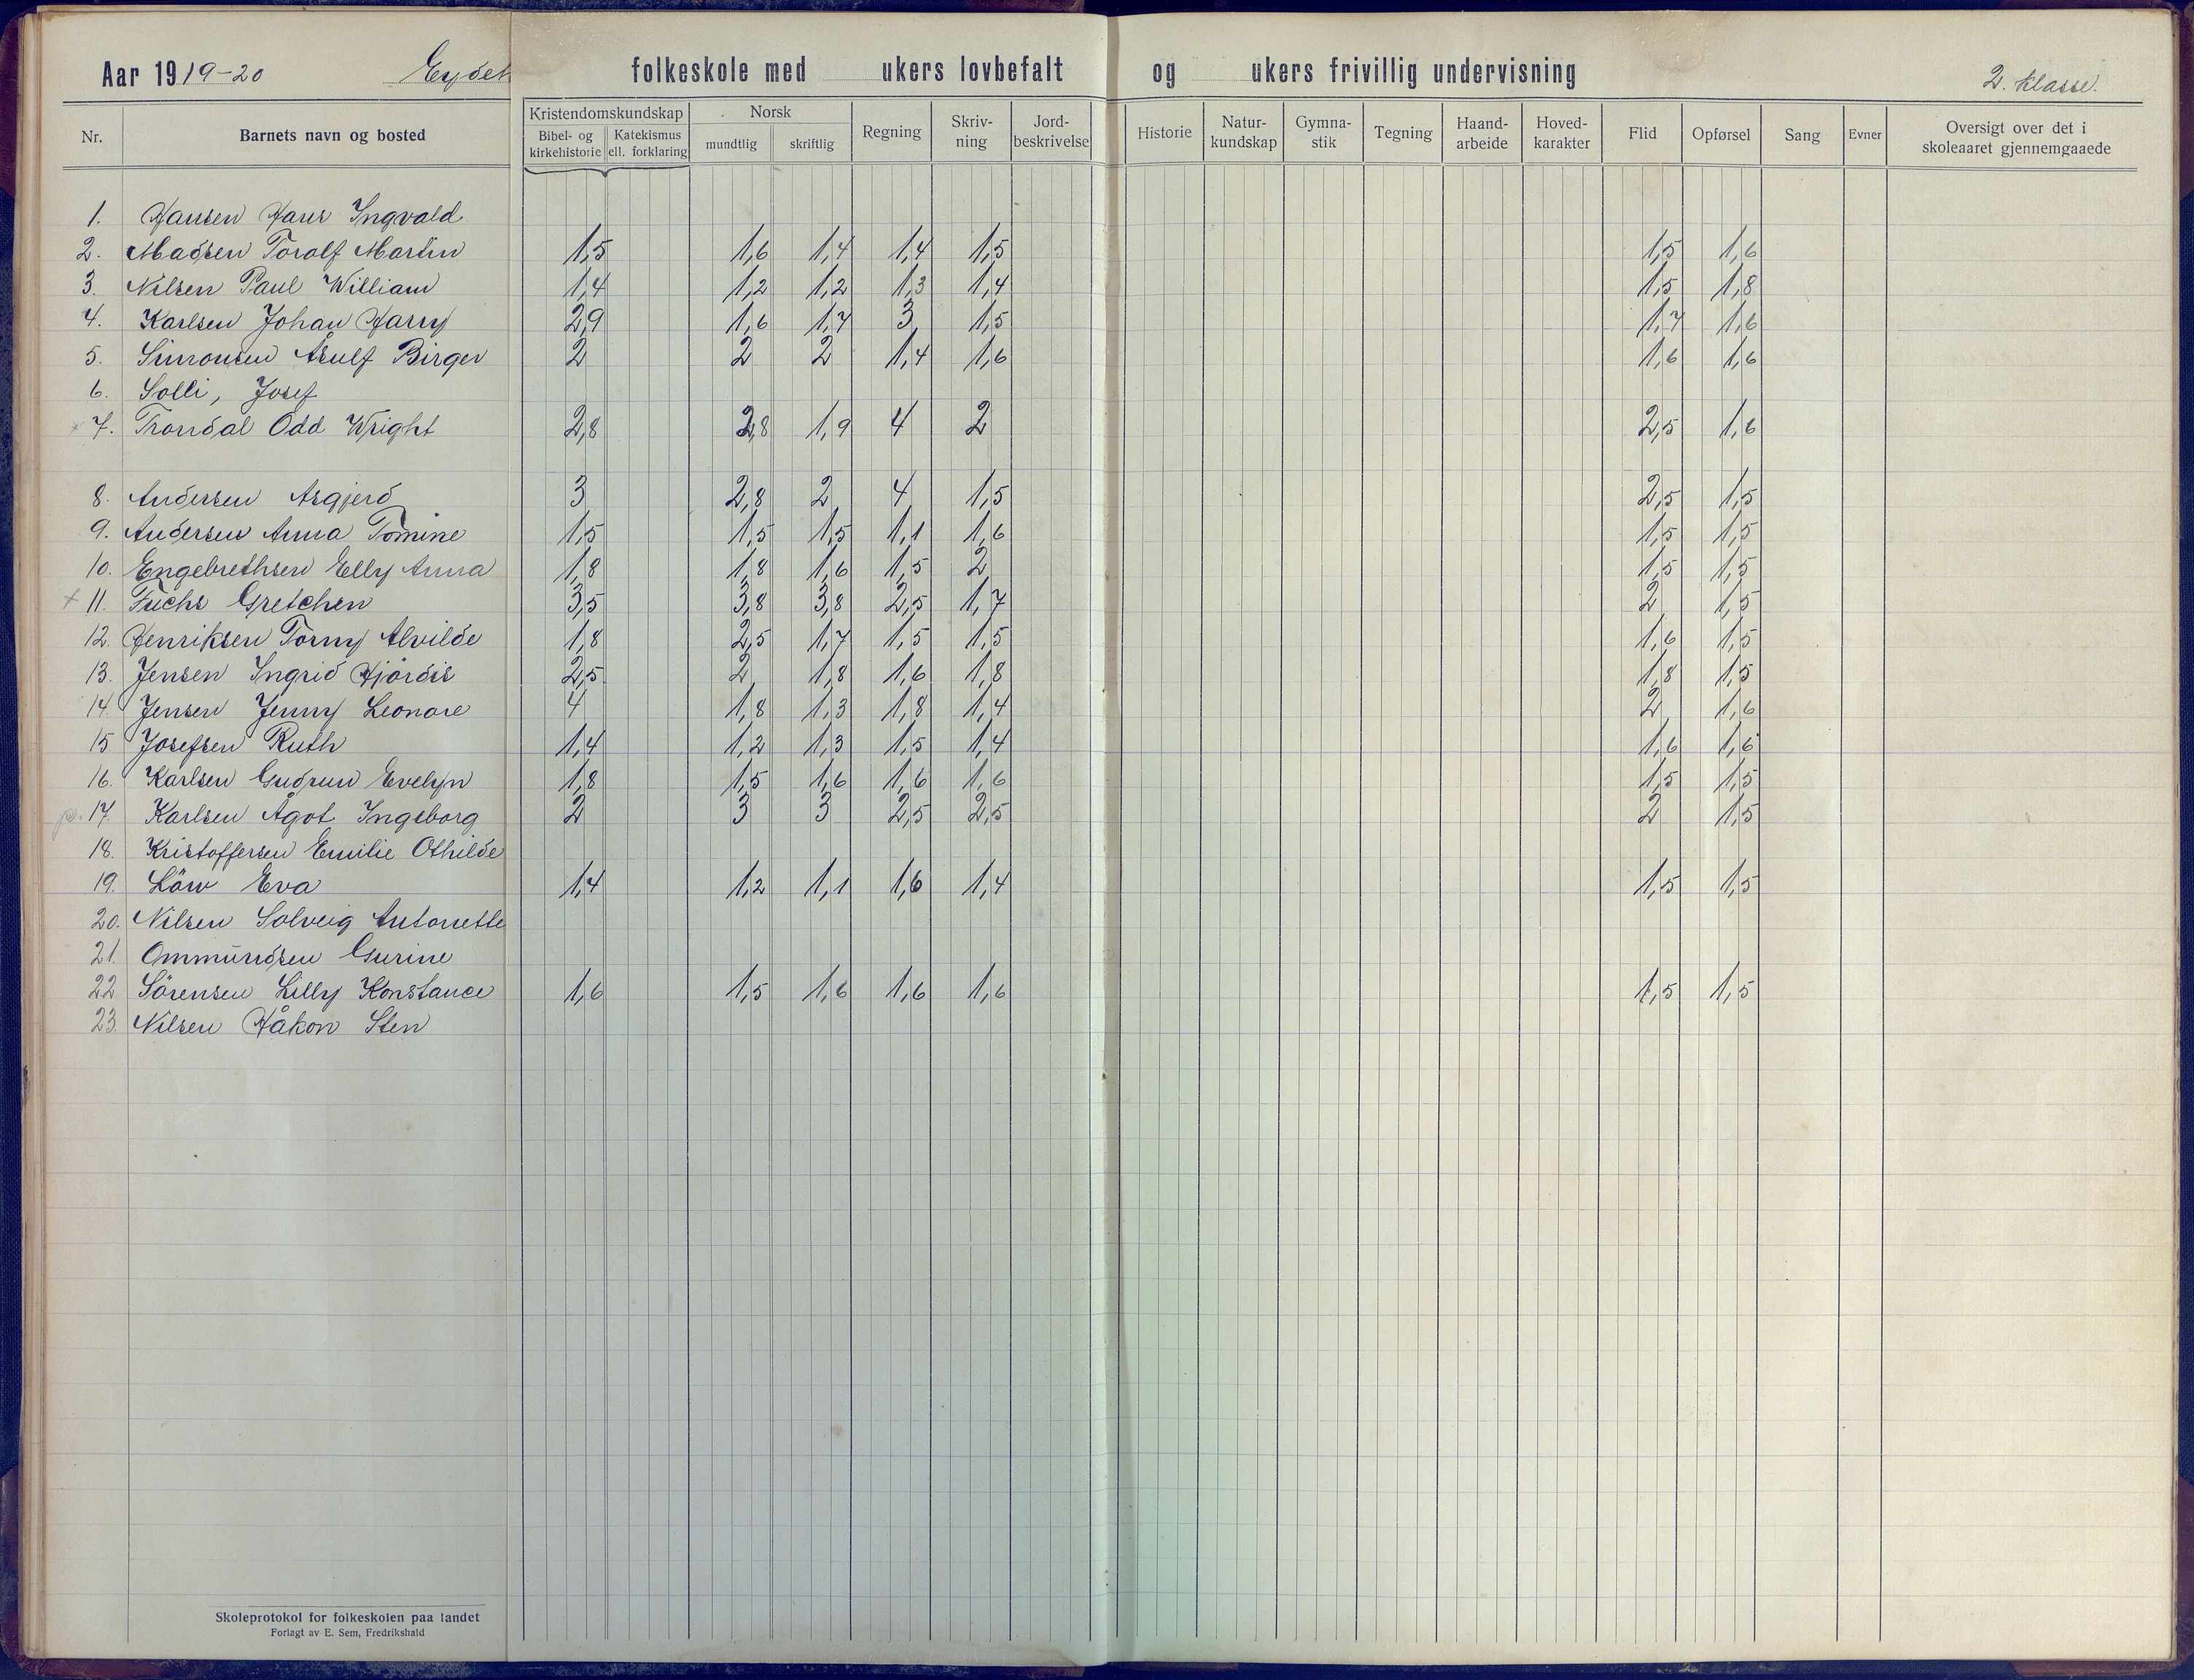 Aar 1919-20 Eydeh folkeskole med ukers lovbefalt og ukers frivillig undervisning 2. klasse.
Nr. Barnets navn og bosted Kristendomskundskap Bibel- og kirkehistorie Katekismus ell. forklaring Norsk mundtlig skriftlig Regning Skriv-ning Jord-beskrivelse Historie Natur-kundskap Gymna-stik Tegning Haand-arbeide Hoved-karakter Flid Opførsel Sang Evner Oversigt over det i skoleaaret gjennemgaaede
1. Hansen Hans Ingvald
2. Madsen Toralf Martin 1,5 1,6 1,4 1,4 1,5 1,5 1,6
3. Nilsen Paul William 1,4 1,2 1,2 1,3 1,4 1,5 1,8
4. Karlsen Johan Harry 2,9 1,6 1,7 3 1,5 1,7 1,6
5. Simonsen Åsulf Birger 2 2 2 1,4 1,6 1,6 1,6
6. Solli, Josef
x 7. Trondal Odd Wright 2,8 2,8 1,9 4 2 2,5 1,6
8. Andersen Asgjerd 3 2,8 2 4 1,5 2,5 1,5
9. Andersen Anna Tomine 1,5 1,5 1,5 1,1 1,6 1,5 1,5
10. Engebrethsen Elly Anna 1,8 1,8 1,6 1,5 2 1,5 1,5
x 11. Fuchs Gretchen 3,5 3,8 3,8 2,5 1,7 2 1,5
12. Henriksen Torny Alvilde 1,8 2,5 1,7 1,5 1,5 1,6 1,5
13. Jensen Ingrid Hjördis 2,5 2 1,8 1,6 1,8 1,8 1,5
14. Jensen Jenny Leonore 4 1,8 1,3 1,8 1,4 2 1,6
15 Josefsen Ruth 1,4 1,2 1,3 1,5 1,4 1,6 1,6
16. Karlsen Gudrun Evelyn 1,8 1,5 1,6 1,6 1,6 1,5 1,5
p. 17. Karlsen Ågot Ingeborg 2 3 3 2,5 2,5 2 1,5
18. Kristoffersen Emilie Othilde
19. Löw Eva 1,4 1,2 1,1 1,6 1,4 1,5 1,5
20. Nilsen Solveig Antonette
21. Ommundsen Gurine
22 Sörensen Lilly Konstance 1,6 1,5 1,6 1,6 1,6 1,5 1,5
23. Nilsen Håkon Sten
Skoleprotokol for folkeskolen paa landet
Forlagt av E. Sem, Fredrikshald